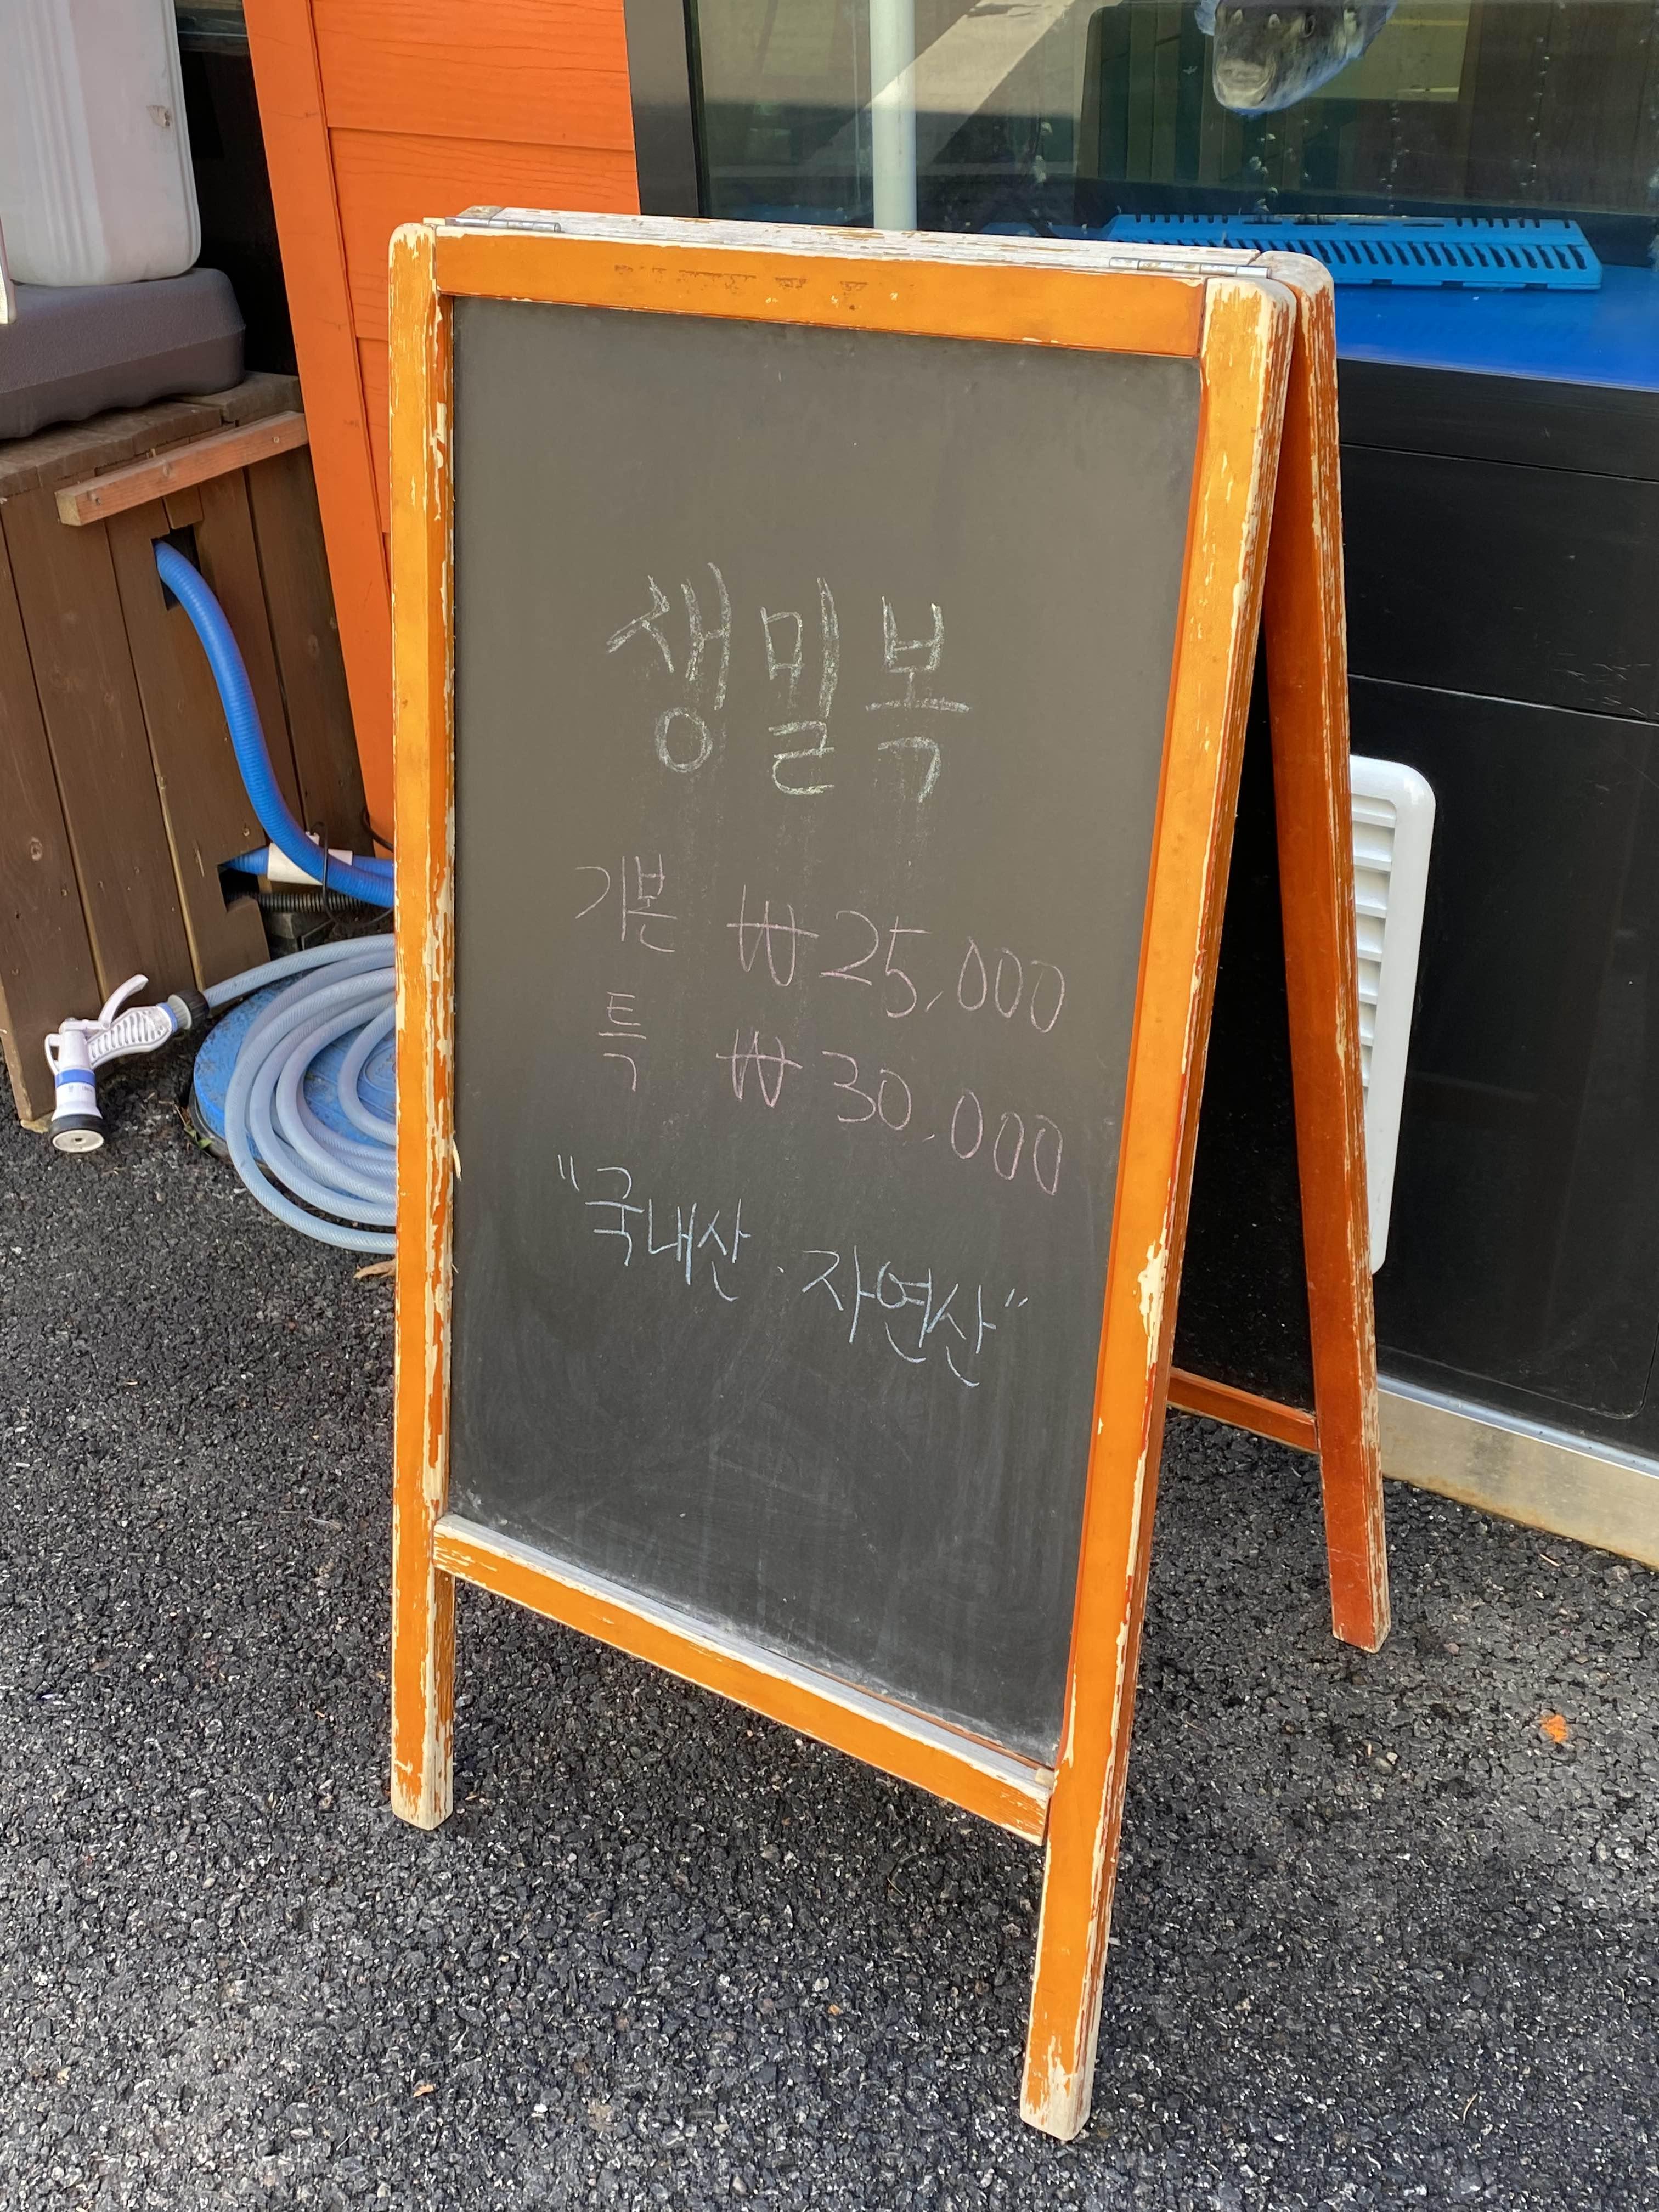 생밀복
기본 ₩25,000
특 ₩30,000
"국내산. 자연산"